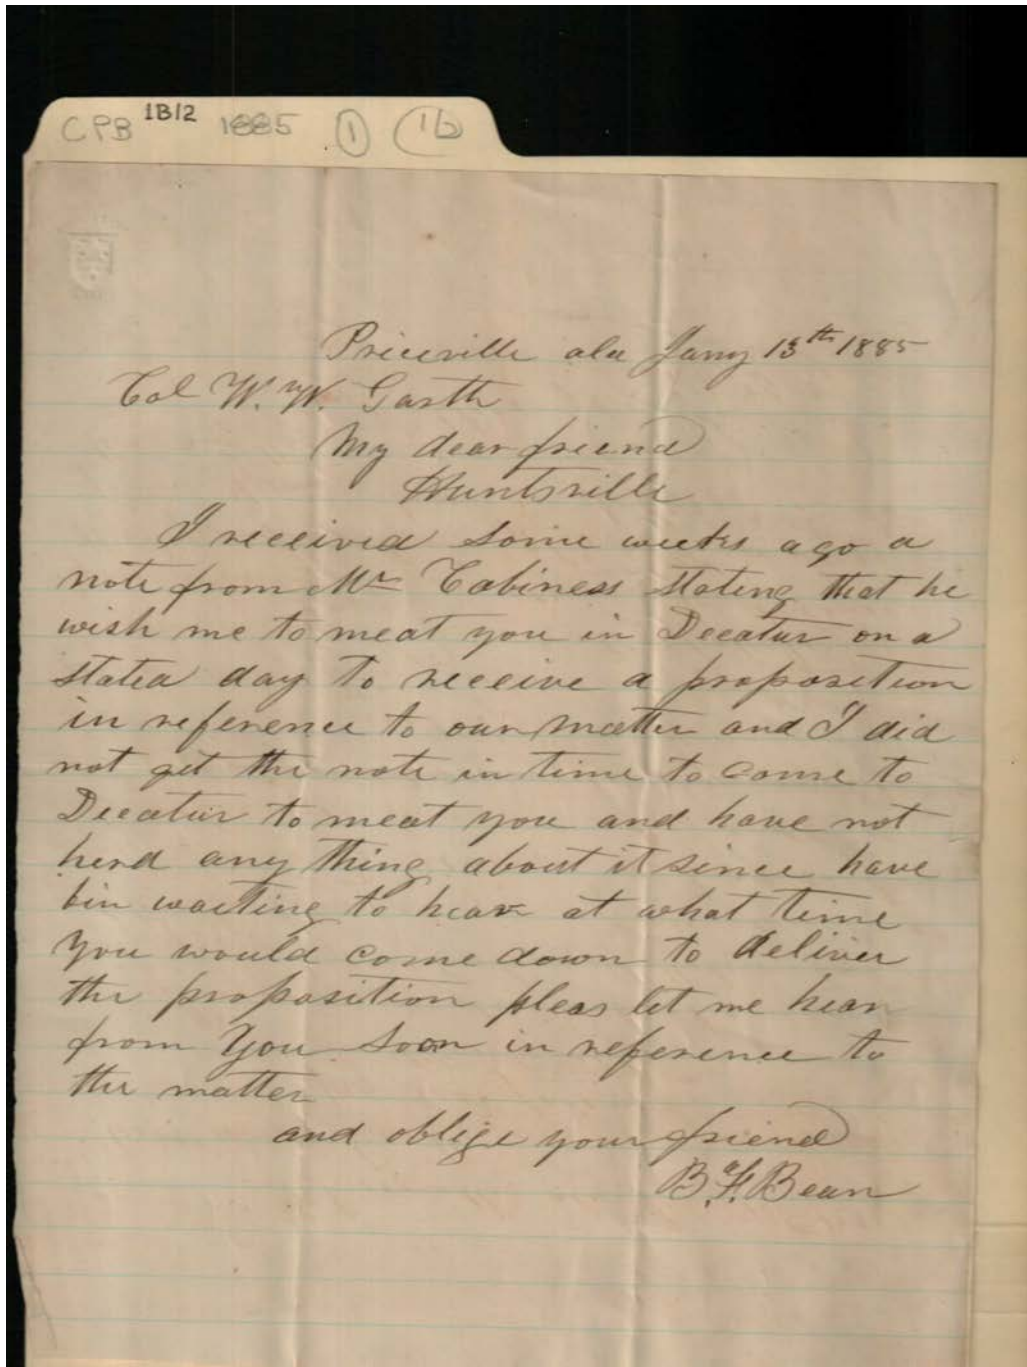 CPB 1B12 1885 ① (1b)
Priceville ala Jany 13th 1885
Col W. W. Garth
My dear friend
Huntsville
I received some weeks ago a
note from Mr Cabiness stating that he
wish me to meat you in Decatur on a
stated day to receive a proposition
in reference to our matter and I did
not get the note in time to come to
Decatur to meat you and have not
herd any thing about it since have
bin waiting to hear at what time
you would come down to deliver
the proposition pleas let me hear
from you soon in reference to
the matter
and oblige your friend
B. F. Bean